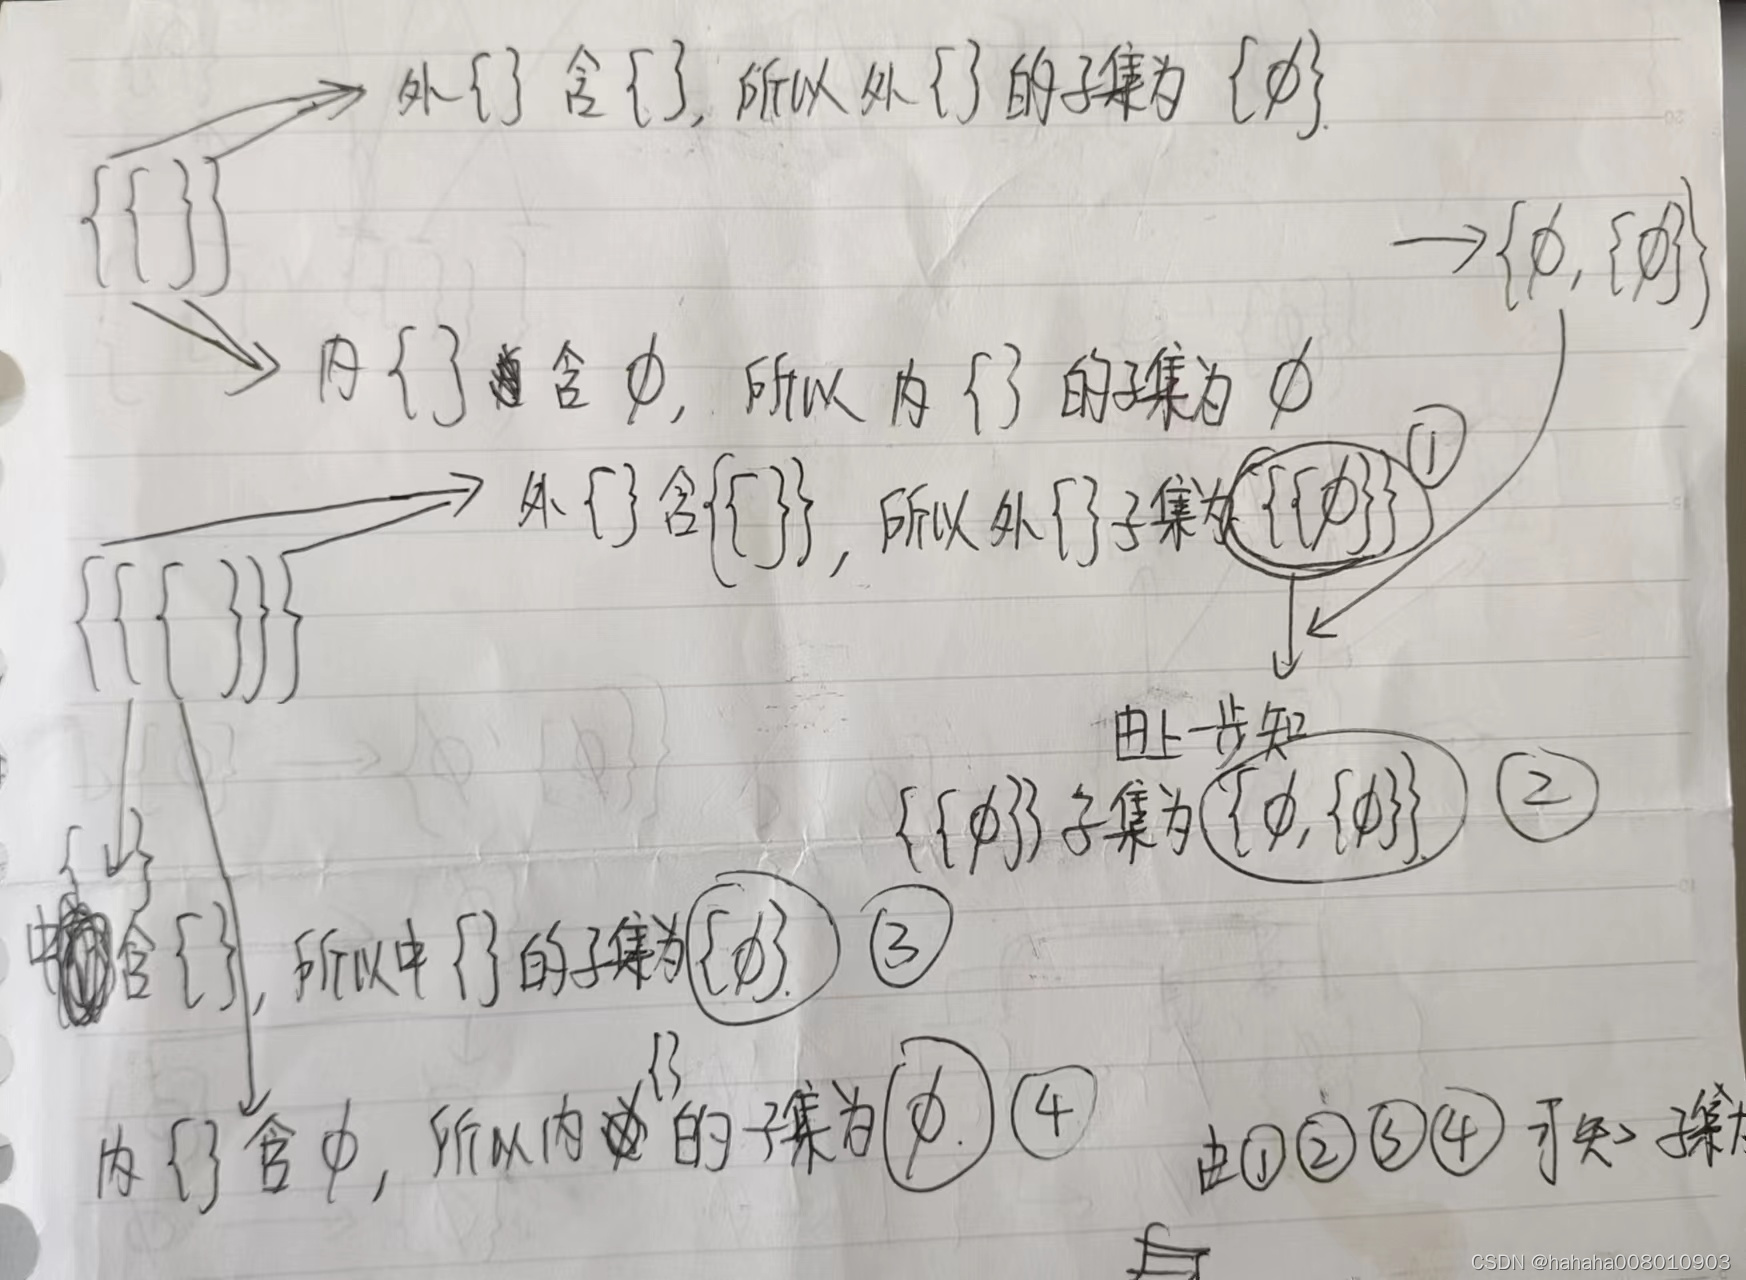 外{}含{}, 所以外{}的子集为{∅}.
{{}}
→{∅,{∅}}
内{}含∅, 所以内{}的子集为∅
①
外{}含{{}}, 所以外{}子集为{{∅}}
{{{}}}
由上一步知
{{∅}}子集为{∅,{∅}}. ②
{}
中含{}, 所以中{}的子集为{∅}. ③
{}
内{}含∅, 所以内的子集为∅. ④
由①②③④可知子集为